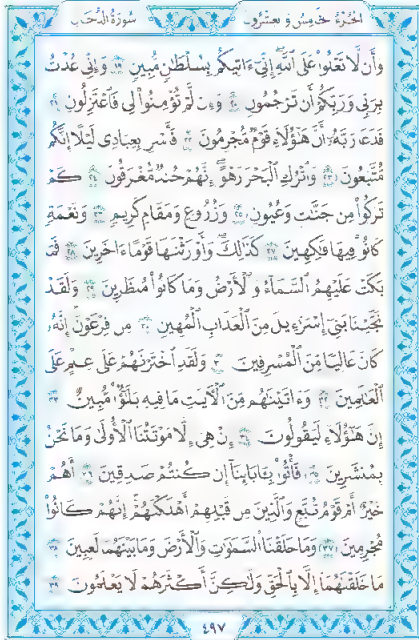 الجزء الخامس والعشرون سورة الدخان
وَأَن لَّا تَعْلُوا عَلَى اللَّهِ إِنِّي ءَاتِيكُم بِسُلْطَانٍ مُّبِينٍ ١٩ وَإِنِّي عُذْتُ
بِرَبِّي وَرَبِّكُمْ أَن تَرْجُمُونِ ٢٠ وَإِن لَّمْ تُؤْمِنُوا لِي فَاعْتَزِلُونِ ٢١
فَدَعَا رَبَّهُ أَنَّ هَٰؤُلَاءِ قَوْمٌ مُّجْرِمُونَ ٢٢ فَأَسْرِ بِعِبَادِي لَيْلًا إِنَّكُم
مُّتَّبَعُونَ ٢٣ وَاتْرُكِ الْبَحْرَ رَهْوًا إِنَّهُمْ جُندٌ مُّغْرَقُونَ ٢٤ كَمْ
تَرَكُوا مِن جَنَّاتٍ وَعُيُونٍ ٢٥ وَزُرُوعٍ وَمَقَامٍ كَرِيمٍ ٢٦ وَنَعْمَةٍ
كَانُوا فِيهَا فَاكِهِينَ ٢٧ كَذَٰلِكَ وَأَوْرَثْنَاهَا قَوْمًا ءَاخَرِينَ ٢٨ فَمَا
بَكَتْ عَلَيْهِمُ السَّمَاءُ وَالْأَرْضُ وَمَا كَانُوا مُنظَرِينَ ٢٩ وَلَقَدْ
نَجَّيْنَا بَنِي إِسْرَٰءِيلَ مِنَ الْعَذَابِ الْمُهِينِ ٣٠ مِن فِرْعَوْنَ إِنَّهُ
كَانَ عَالِيًا مِّنَ الْمُسْرِفِينَ ٣١ وَلَقَدِ اخْتَرْنَاهُمْ عَلَىٰ عِلْمٍ عَلَى
الْعَالَمِينَ ٣٢ وَءَاتَيْنَاهُم مِّنَ الْآيَاتِ مَا فِيهِ بَلَٰؤٌا مُّبِينٌ ٣٣
إِنَّ هَٰؤُلَاءِ لَيَقُولُونَ ٣٤ إِنْ هِيَ إِلَّا مَوْتَتُنَا الْأُولَىٰ وَمَا نَحْنُ
بِمُنشَرِينَ ٣٥ فَأْتُوا بِـَٔابَائِنَا إِن كُنتُمْ صَادِقِينَ ٣٦ أَهُمْ
خَيْرٌ أَمْ قَوْمُ تُبَّعٍ وَالَّذِينَ مِن قَبْلِهِمْ أَهْلَكْنَاهُمْ إِنَّهُمْ كَانُوا
مُجْرِمِينَ ٣٧ وَمَا خَلَقْنَا السَّمَاوَاتِ وَالْأَرْضَ وَمَا بَيْنَهُمَا لَاعِبِينَ ٣٨
مَا خَلَقْنَاهُمَا إِلَّا بِالْحَقِّ وَلَٰكِنَّ أَكْثَرَهُمْ لَا يَعْلَمُونَ ٣٩
٤٩٧